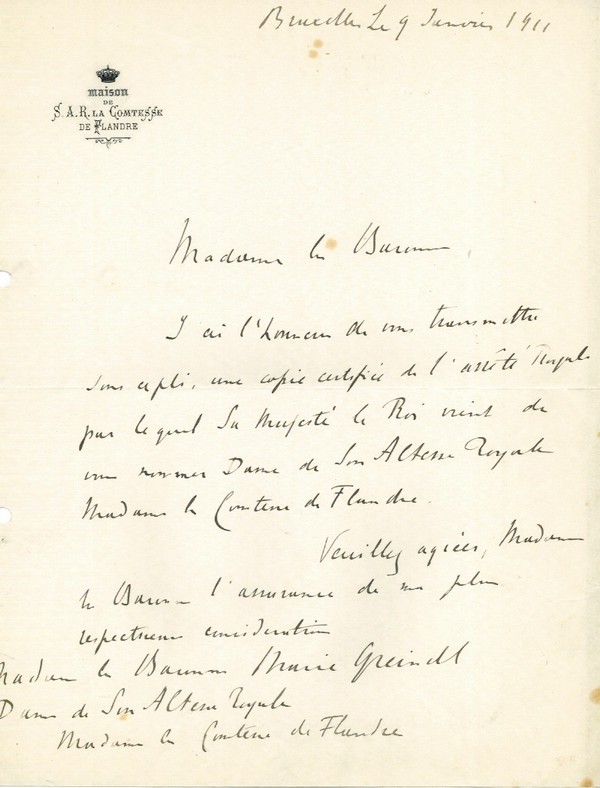 Bruxelles Le 9 Janvier 1911
Maison
DE
S.A.R. LA COMTESSE
DE FLANDRE
Madame la Baronne,
J'ai l'honneur de vous transmettre
sous ce pli, une copie certifiée de l'arrêté Royale
par lequel Sa Majesté le Roi vient de
vous nommer Dame de Son Altesse Royale
Madame la Comtesse de Flandre.
Veuillez agréer, Madame
la Baronne l'assurance de ma plus
respectueuse considération
Madame la Baronne Marie Greindl
Dame de Son Altesse Royale
Madame la Comtesse de Flandre